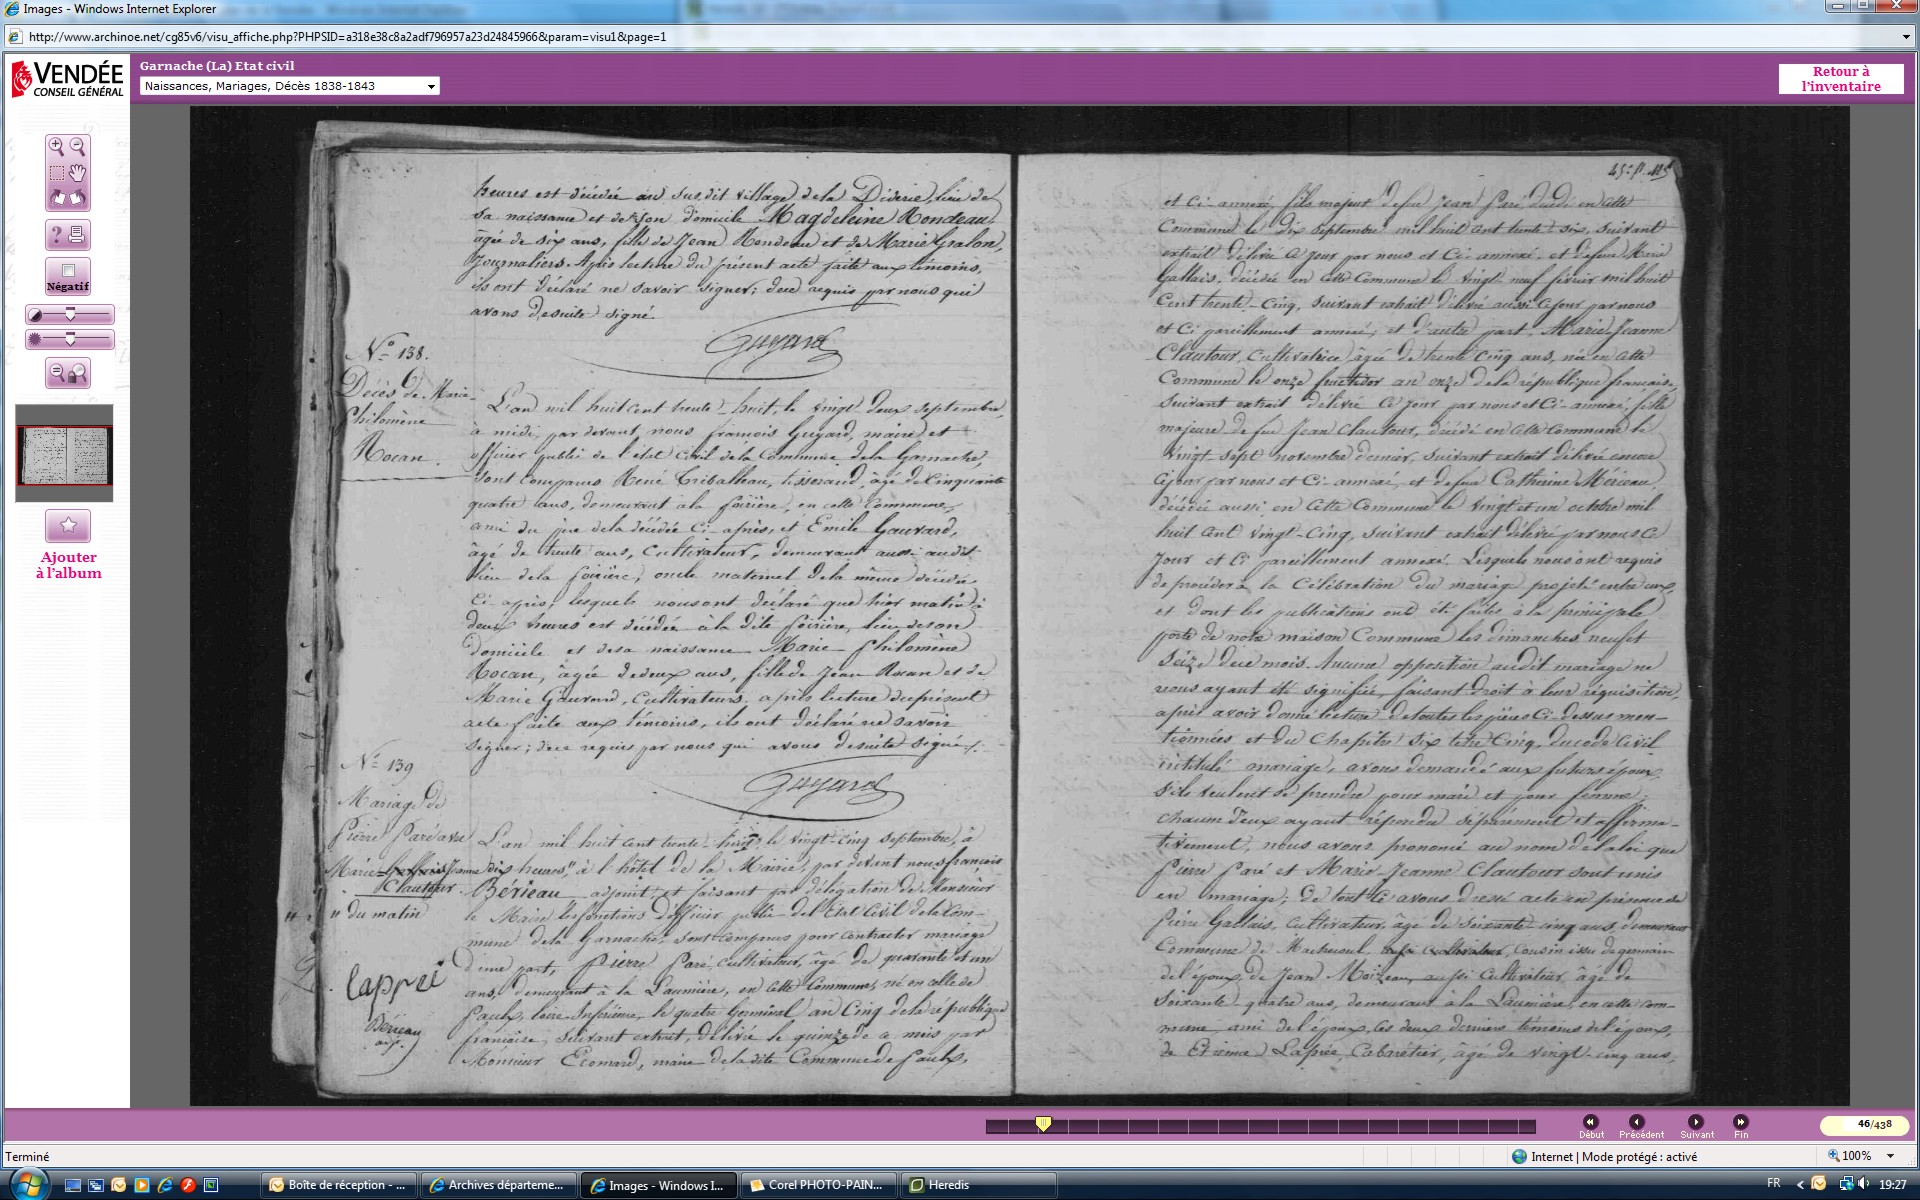 Images - Windows Internet Explorer
http://www.archinoe.net/cg85v6/visu_affiche.php?PHPSID=a318e38c8a2adf796957a23d24845966&param=visu1&page=1
VENDÉE
CONSEIL GÉNÉRAL
Garnache (La) Etat civil
Naissances, Mariages, Décès 1838-1843
Retour à
l'inventaire
Négatif
Ajouter
à l'album
heures est décédée au susdit village de la Diderie, lieu de
sa naissance et de son domicile Magdeleine Rondeau,
âgée de six ans, fille de Jean Rondeau et de Marie Gralon,
Journaliers. Après lecture du présent acte faite aux témoins,
ils ont déclaré ne savoir signer; de ce requis par nous qui
avons de suite signé
Guyard
N° 138.
Décès de Marie
Philomène
Rocan.
L'an mil huit cent trente-huit, le vingt deux septembre,
à midi, par devant nous françois Guyard, maire et
officier public de l'état Civil de la Commune de la Garnache,
Sont comparus René Tribalheau, tisserand, âgé de Cinquante
quatre ans, demeurant à la foirière, en cette Commune,
ami du père de la décédée Ci-après, et Emile Gauvard,
âgé de trente ans, Cultivateur, demeurant aussi audit
lieu de la foirière, oncle maternel de la même décédée
Ci-après; lesquels nous ont déclaré que hier matin à
deux heures est décédée à la dite foirière, lieu de son
domicile et de sa naissance Marie Philomène
Rocan, âgée de deux ans, fille de Jean Rocan et de
Marie Gauvard, Cultivateurs. après lecture du présent
acte faite aux témoins, ils ont déclaré ne savoir
signer; de ce requis par nous qui avons de suite signé.
Guyard
N° 139
Mariage de
Pierre Paré avec
Marie Jeanne
Clautour.
" du matin
L'an mil huit cent trente-huit, le vingt-cinq septembre, à
dix heures," à l'hôtel de la Mairie, par devant nous françois
Bérieau adjoint, et faisant par délégation de Monsieur
le Maire les fonctions d'officier public de l'Etat Civil de la Com-
mune de la Garnache, sont comparus pour contracter mariage
d'une part, Pierre Paré, Cultivateur, âgé de quarante et un
ans, demeurant à la Laumière, en cette Commune, né en celle de
Paulx, Loire-Inférieure, le quatre Germinal an Cinq de la république
française, suivant extrait, délivré le quinze de ce mois par
Monsieur Ecomard, maire de la dite Commune de Paulx,
Lappréi
Bérieau
adj.
45
et Ci-annexé, fils majeur de feu Jean Paré, décédé en cette
Commune le dix septembre mil huit cent trente-six, suivant
extrait délivré ce jour par nous et Ci-annexé, et de feue Marie
Gallais, décédée en cette Commune le vingt neuf février mil huit
Cent trente-Cinq, suivant extrait délivré aussi ce jour par nous
et Ci pareillement annexé; et d'autre part, Marie-Jeanne
Clautour, Cultivatrice, âgée de trente Cinq ans, née en cette
Commune le onze fructidor an onze de la république française,
suivant extrait délivré ce jour par nous et Ci-annexé, fille
majeure de feu Jean Clautour, décédé en cette Commune le
vingt-sept novembre dernier, suivant extrait délivré encore
ce jour par nous et Ci-annexé, et de feue Catherine Mérieau
décédée aussi en cette Commune le vingt et un octobre mil
huit cent vingt-Cinq, suivant extrait délivré par nous ce
jour et Ci pareillement annexé. Lesquels nous ont requis
de procéder à la Célébration du mariage projeté entre eux,
et dont les publications ont été faites à la principale
porte de notre maison Commune les dimanches neuf et
seize de ce mois. Aucune opposition audit mariage ne
nous ayant été signifiée, faisant droit à leur réquisition,
après avoir donné lecture de toutes les pièces Ci-dessus men-
tionnées et du Chapitre six titre Cinq du code Civil
intitulé mariage, avons demandé aux futurs époux
s'ils veulent se prendre pour mari et pour femme;
chacun d'eux ayant répondu séparément et affirma-
tivement, nous avons prononcé au nom de la loi que
Pierre Paré et Marie-Jeanne Clautour sont unis
en mariage; De tout ce avons dressé acte en présence de
Pierre Gallais, Cultivateur, âgé de soixante-cinq ans, demeurant
Commune de Machecoul, cousin issu de germain
de l'époux, de Jean Moizeau, aussi Cultivateur, âgé de
soixante quatre ans, demeurant à la Laumière, en cette com-
mune, ami de l'époux, les deux derniers témoins de l'époux,
de Etienne Laprée, Cabaretier, âgé de vingt-cinq ans,
Début
Précédent
Suivant
Fin
46/438
Terminé
Internet | Mode protégé : activé
100%
Boîte de réception - ...
Archives départeme...
Images - Windows I...
Corel PHOTO-PAIN...
Heredis
FR
19:27